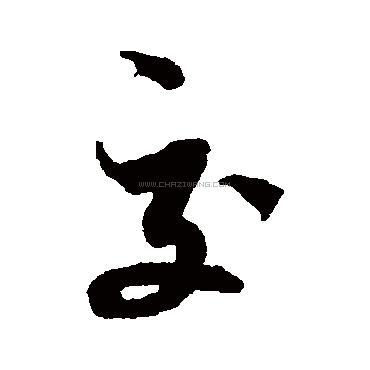 交
WWW.CHAZIWANG.COM